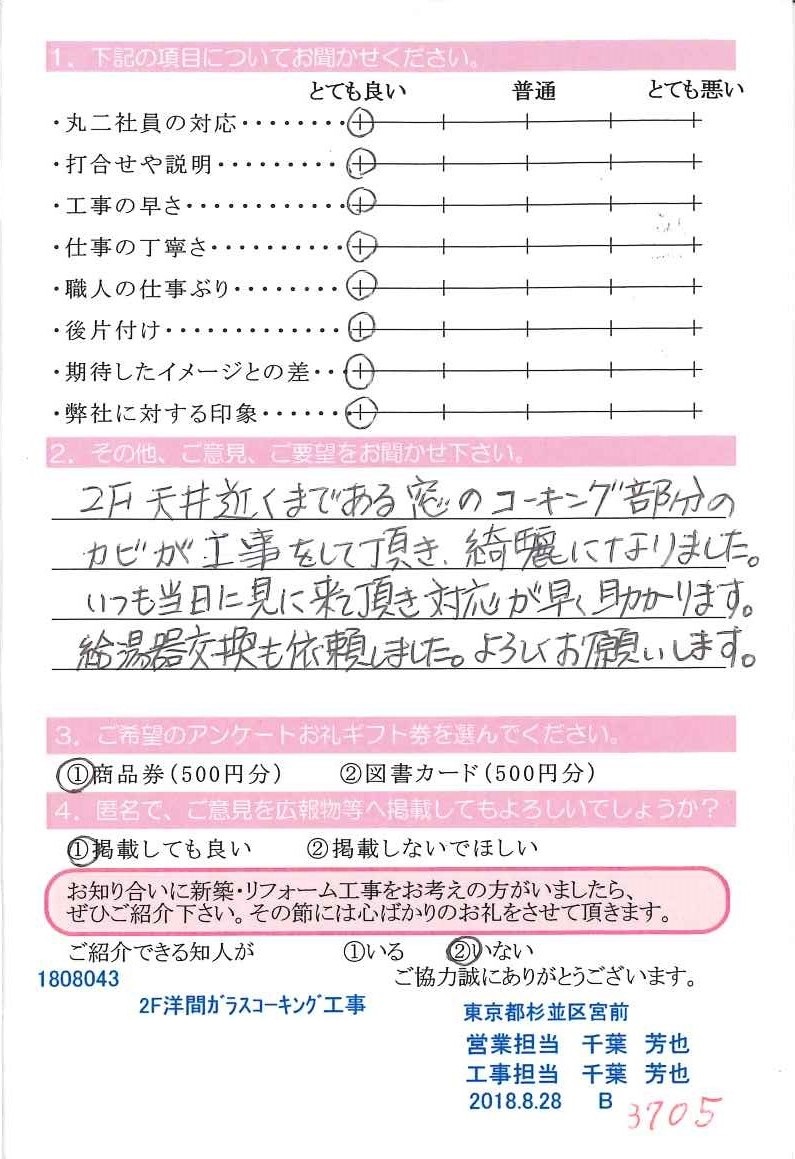 1．下記の項目についてお聞かせください。
とても良い 普通 とても悪い
・丸二社員の対応・・・・・・・・
・打合せや説明・・・・・・・・・
・工事の早さ・・・・・・・・・・・・
・仕事の丁寧さ・・・・・・・・・・
・職人の仕事ぶり・・・・・・・・
・後片付け・・・・・・・・・・・・・
・期待したイメージとの差・・・
・弊社に対する印象・・・・・・・
2．その他、ご意見、ご要望をお聞かせ下さい。
2F 天井近くまである窓のコーキング部分の
カビが工事をして頂き、綺麗になりました。
いつも当日に見に来て頂き対応が早く助かります。
給湯器交換も依頼しました。よろしくお願いします。
3．ご希望のアンケートお礼ギフト券を選んでください。
①商品券(500円分) ②図書カード(500円分)
4．匿名で、ご意見を広報物等へ掲載してもよろしいでしょうか?
①掲載しても良い ②掲載しないでほしい
お知り合いに新築・リフォーム工事をお考えの方がいましたら、
ぜひご紹介下さい。その節には心ばかりのお礼をさせて頂きます。
ご紹介できる知人が ①いる ②いない
1808043 ご協力誠にありがとうございます。
2F洋間ガラスコーキング工事 東京都杉並区宮前
営業担当 千葉 芳也
工事担当 千葉 芳也
2018.8.28 B 3705